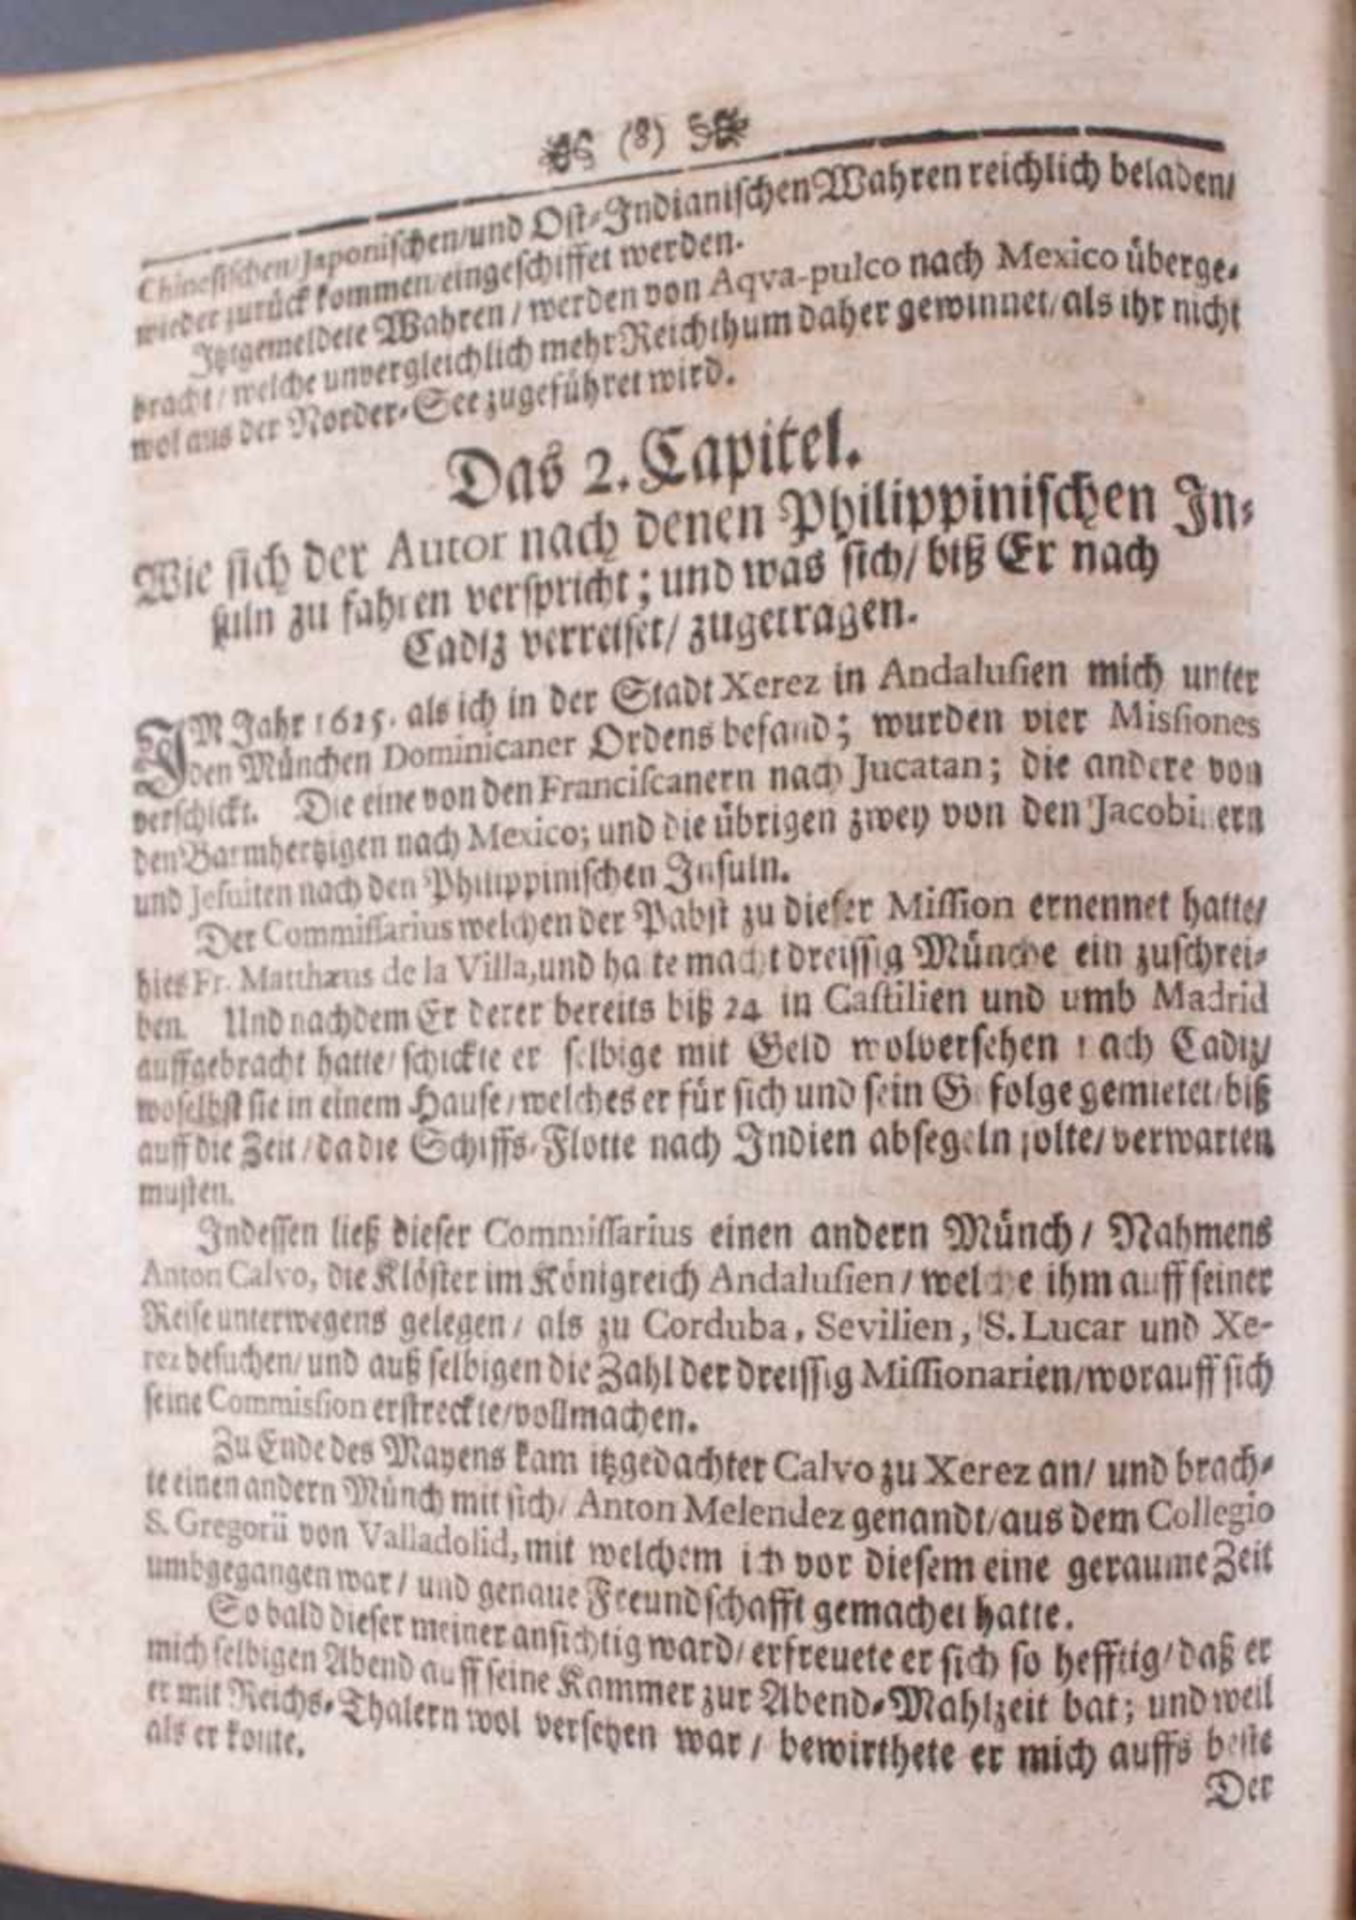 (8)
Chinesischen/Japonischen/und Ost-Indianischen Wahren reichlich beladen/
wieder zurück kommen/eingeschiffet werden.
Itztgemeldete Wahren / werden von Aqva-pulco nach Mexico überge-
bracht / welche unvergleichlich mehr Reichthum daher gewinnet/als ihr nicht
wol aus der Norder-See zugeführet wird.
Das 2. Capitel.
Wie sich der Autor nach denen Philippinischen In-
suln zu fahren verspricht; und was sich/ biß Er nach
Cadiz verreiset/ zugetragen.
IM Jahr 1625. als ich in der Stadt Xerez in Andalusien mich unter
den München Dominicaner Ordens befand; wurden vier Missiones
verschickt. Die eine von den Franciscanern nach Jucatan; die andere von
den Barmhertzigen nach Mexico; und die übrigen zwey von den Jacobinern
und Jesuiten nach den Philippinischen Insuln.
Der Commissarius welchen der Pabst zu dieser Mission ernennet hatte/
hies Fr. Matthæus de la Villa,und hatte macht dreissig Münche ein zuschrei-
ben. Und nachdem Er derer bereits biß 24 in Castilien und umb Madrid
auffgebracht hatte/ schickte er selbige mit Geld wolversehen nach Cadiz/
woselbst sie in einem Hause/welches er für sich und sein Gefolge gemietet/biß
auff die Zeit / da die Schiffs-Flotte nach Indien absegeln solte/ verwarten
musten.
Indessen ließ dieser Commissarius einen andern Münch / Nahmens
Anton Calvo, die Klöster im Königreich Andalusien / welche ihm auff seiner
Reise unterwegens gelegen / als zu Corduba, Sevilien, S. Lucar und Xe-
rez besuchen/ und auß selbigen die Zahl der dreissig Missionarien/worauff sich
seine Commission erstreckte/vollmachen.
Zu Ende des Mayens kam itzgedachter Calvo zu Xerez an/ und brach-
te einen andern Münch mit sich/ Anton Melendez genandt/aus dem Collegio
S. Gregorii von Valladolid, mit welchem ich vor diesem eine geraume Zeit
umbgegangen war / und genaue Freundschafft gemachet hatte.
So bald dieser meiner ansichtig ward/ erfreuete er sich so hefftig/daß er
mich selbigen Abend auff seine Kammer zur Abend-Mahlzeit bat; und weil
er mit Reichs-Thalern wol versehen war / bewirthete er mich auffs beste
als er konte.
Der